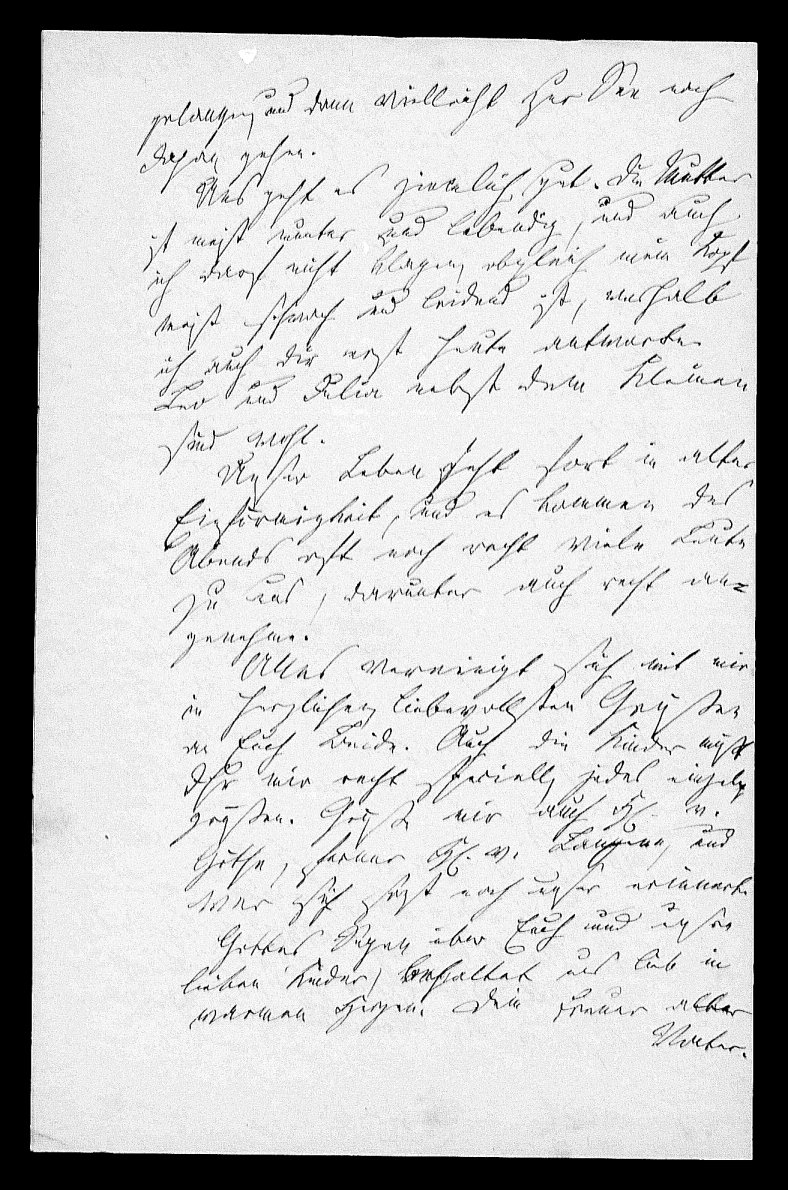 gelangen, und dann vielleicht zur See nach
Japan gehen.
Uns geht es ziemlich gut. Die Mutter
ist meist munter und lebendig, und auch
ich darf nicht klagen, obgleich mein Kopf
meist schwach und leidend ist, weshalb
ich auch dir erst heute antworte.
Leo und Julia nebst dem Kleinen
sind wohl.
Unser Leben geht fort in alter
Einförmigkeit, und es kommen des
Abends oft noch recht viele Leute
zu uns, darunter auch recht an-
genehme.
Alles vereinigt sich mit mir
in herzlichen, liebevollsten Grüßen
an Euch Beide. Auch die Kinder müßt
Ihr mir recht speciell, jedes einzeln
grüßen. Grüße mir auch H. v.
Göthe, ferner H. v.
wer sich sonst noch unser erinnert.
Gottes Segen über Euch und unsre
lieben Kinder, behaltet uns lieb in
warmen Herzen. Dein treuer alter
Vater.